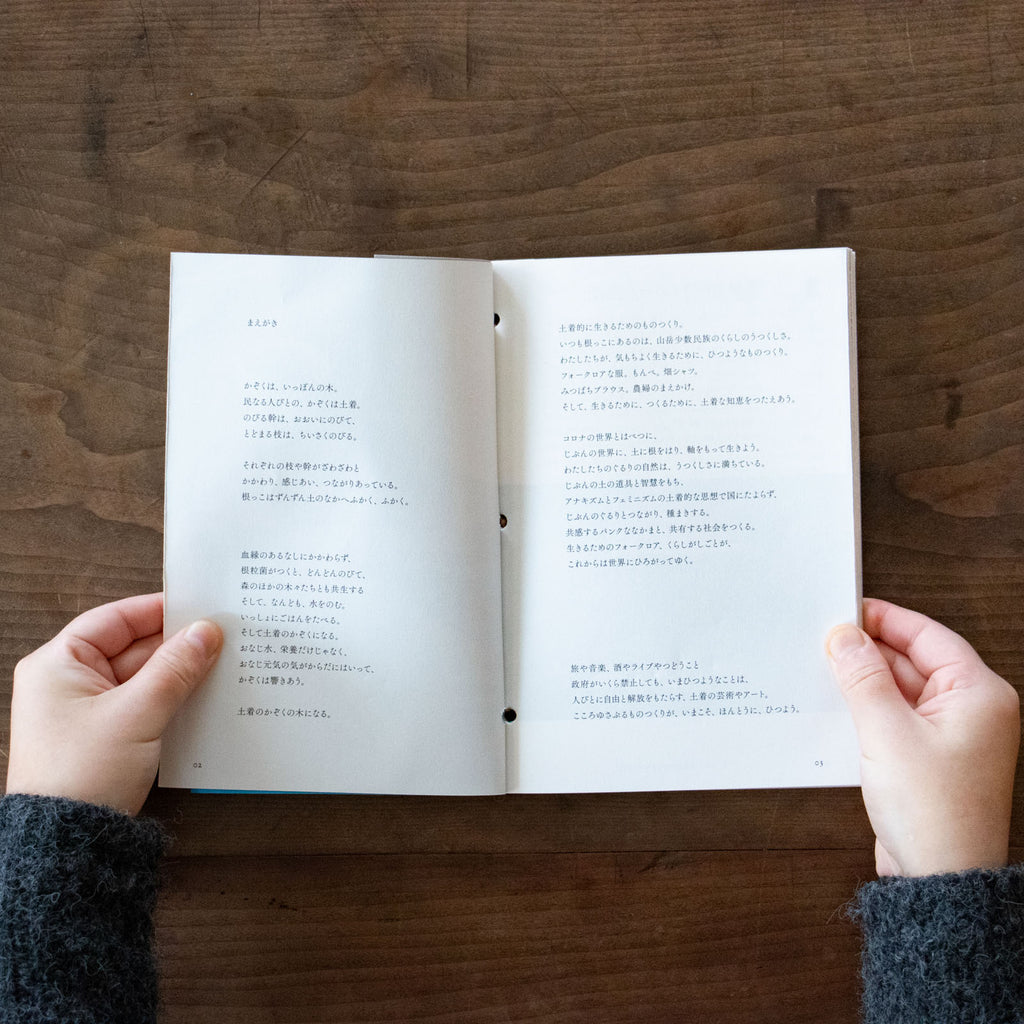 まえがき
かぞくは、いっぽんの木。
民なる人びとの、かぞくは土着。
のびる幹は、おおいにのびて、
とどまる枝は、ちいさくのびる。
それぞれの枝や幹がざわざわと
かかわり、感じあい、つながりあっている。
根っこはずんずん土のなかへふかく、ふかく。
血縁のあるなしにかかわらず、
根粒菌がつくと、どんどんのびて、
森のほかの木々たちとも共生する
そして、なんども、水をのむ。
いっしょにごはんをたべる。
そして土着のかぞくになる。
おなじ水、栄養だけじゃなく、
おなじ元気の気がからだにはいって、
かぞくは響きあう。
土着のかぞくの木になる。
02
土着的に生きるためのものつくり。
いつも根っこにあるのは、山岳少数民族のくらしのうつくしさ。
わたしたちが、気もちよく生きるために、ひつようなものつくり。
フォークロアな服。もんぺ。畑シャツ。
みつばちブラウス。農婦のまえかけ。
そして、生きるために、つくるために、土着な知恵をつたえあう。
コロナの世界とはべつに、
じぶんの世界に、土に根をはり、軸をもって生きよう。
わたしたちのぐるりの自然は、うつくしさに満ちている。
じぶんの土の道具と智慧をもち、
アナキズムとフェミニズムの土着的な思想で国にたよらず、
じぶんのぐるりとつながり、種まきする。
共感するパンクななかまと、共有する社会をつくる。
生きるためのフォークロア、くらしがしごとが、
これからは世界にひろがってゆく。
旅や音楽、酒やライブやつどうこと
政府がいくら禁止しても、いまひつようなことは、
人びとに自由と解放をもたらす、土着の芸術やアート。
こころゆさぶるものつくりが、いまこそ、ほんとうに、ひつよう。
03